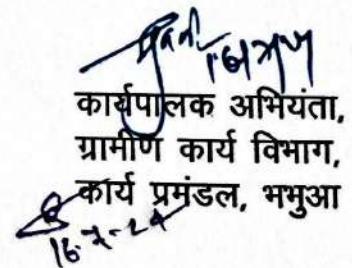 कार्यपालक अभियंता,
ग्रामीण कार्य विभाग,
कार्य प्रमंडल, भभुआ
16-7-24